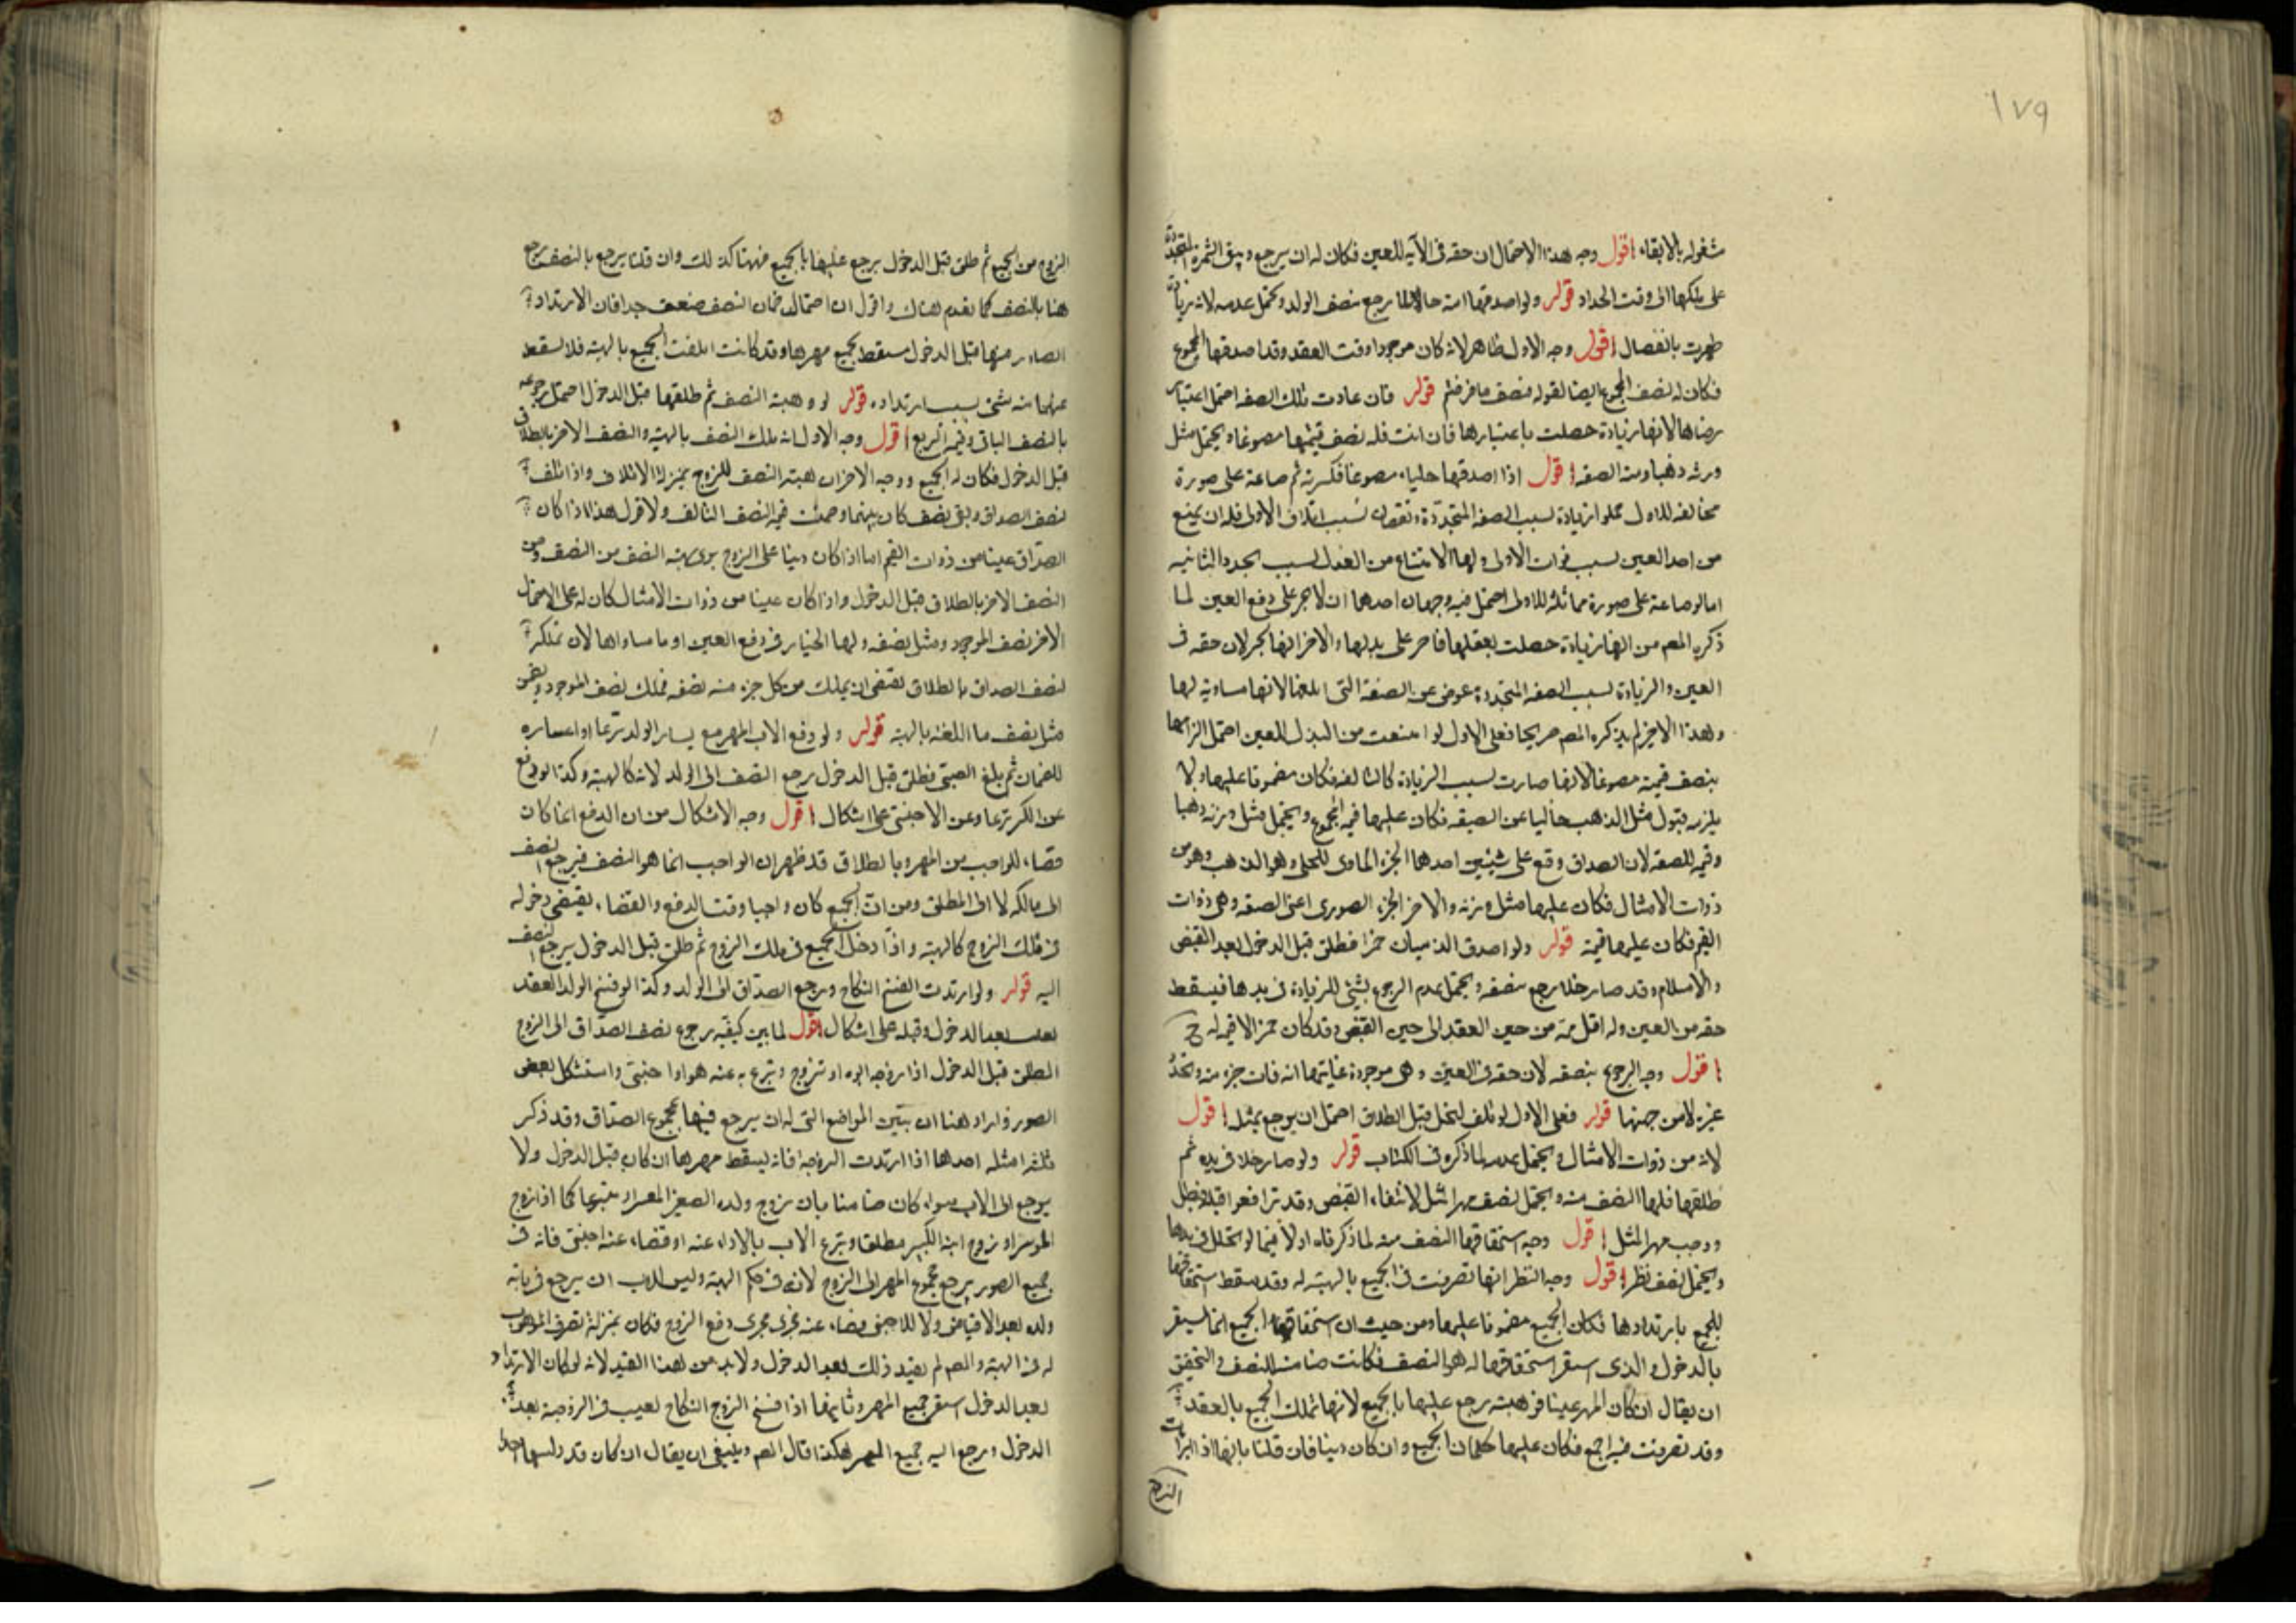 ١٧٩
مشغوله بالابقاء اقول وجه هذا الاحتمال ان حقه فى الآيه للعين فكان له ان يرجع ويبقى الثمرة المتجددة
على ملكها الى وقت الجداد قوله ولو اصدقها امة حاملا رجع بنصف الولد ويحتمل عدمه لانه زيادة
ظهرت بانفصال اقول وجه الاول ظاهر لانه كان موجودا وقت العقد وقد اصدقها المجموع
فكان له نصف المجموع ايضا لقوله فنصف ما فرضتم قوله فان عادت تلك الصفه احتمل اعتبار
رضاها لانها زيادة حصلت باعتبارها فان ابت فله نصف قيمتها مصوغا ويحتمل مثل
وزنه ذهبا وقيمة الصفه اقول اذا اصدقها حليا مصوغا فكسرته ثم صاغته على صورة
مخالفه للاول فهو زيادة بسبب الصفه المتجددة ونقصان بسبب اتلاف الاولى فله ان يمتنع
من اخذ العين بسبب فوات الاولى ولها الامتناع من البذل بسبب تجدد الثانيه
اما لو صاغته على صورة مماثلة للاولى احتمل فيه وجهان احدهما ان لا تجبر على دفع العين لما
ذكره المصم من انها زيادة حصلت بفعلها فلا تجبر على بذلها والاخر انها تجبر لان حقه فى
العين والزيادة بسبب الصفه المتجددة عوض عن الصفة التى اتلفتها لانها مساوية لها
وهذا الاخير لم يذكره المصم صريحا فعلى الاول لو امتنعت من البذل للعين احتمل الزامها
بنصف قيمته مصوغا لانها صارت بسبب الزيادة كالتالفه فكان مضمونا عليها ولا
يلزمه قبول مثل الذهب خاليا عن الصيغه فكان عليها قيمة المجموع ويحتمل مثل وزنه ذهبا
وقيمة الصفه لان الصداق وقع على شيئين احدهما الجزء المادى للحلى وهو الذهب وهو من
ذوات الامثال فكان عليها مثل وزنه والاخر الجزء الصورى اعنى الصفه وهى ذوات
القيم فكان عليها قيمته قوله ولو اصدق الذميان خمرا فطلق قبل الدخول بعد القبض
والاسلام وقد صار خلا رجع بنصفه ويحتمل عدم الرجوع بشئ للزيادة فى يدها فيسقط
حقه من العين وله اقل قيمة من حين العقد الى حين القبض وقد كان خمرا لا قيمه له ح
اقول وجه الرجوع بنصفه لان حقه فى العين وهى موجودة غايتها انه فات جزء منه وتجدد
غيره لا من جهتها قوله فعلى الاول لو تلف الخل قبل الطلاق احتمل ان يرجع بمثله اقول
لانه من ذوات الامثال ويحتمل عدمه لما ذكره فى الكتاب قوله ولو صار خلا فى يده ثم
طلقها فلها النصف منه ويحتمل نصف مهر المثل لانتفاء القبض وقد ترافعوا قبله فبطل
ووجب مهر المثل اقول وجه استحقاقها النصف منه لما ذكرناه اولا فيما لو تخلل فى يدها
ويحتمل نصف نظر اقول وجه النظر انها تصرفت فى الجميع بالهبة له وقد سقط استحقاقها
للجميع بارتدادها فكان الجميع مضمونا عليها ومن حيث ان استحقاقها الجميع انما يستقر
بالدخول والذى استقر استحقاقها له هو النصف فكانت ضامنة للنصف والتحقيق
ان يقال ان كان المهر عينا فوهبته رجع عليها بالجميع لانها تملك الجميع بالعقد
وقد تصرفت فيه اجمع فكان عليها ضمان الجميع وان كان دينا فان قلنا بانها اذا ابرات
الزوج
الزوج من الجميع ثم طلق قبل الدخول يرجع عليها بالجميع فههنا كذلك وان قلنا يرجع بالنصف رجع
هنا بالنصف كما تقدم هناك واقول ان احتمال ضمان النصف ضعيف جدا فان الارتداد
الصادر منها قبل الدخول مسقط لجميع مهرها وقد كانت اتلفت الجميع بالهبة فلا يسقط
عنها منه شئ بسبب ارتداده قوله لو وهبته النصف ثم طلقها قبل الدخول احتمل رجوعه
بالنصف الباقى وقيمة الربع اقول وجه الاول انه ملك النصف بالهبة والنصف الاخر بالطلاق
قبل الدخول فكان له الجميع ووجه الاخر ان هبته النصف للزوج بمنزلة الاتلاف واذا تلف
نصف الصداق وبقى نصف كان بينهما وضمنت قيمة النصف التالف ولا قول هذا اذا كان
الصداق عينا من ذوات القيم اما اذا كان دينا على الزوج برى بهبة النصف من النصف ومن
النصف الاخر بالطلاق قبل الدخول واذا كان عينا من ذوات الامثال كان له على الاحتمال
الاخر نصف الموجود ومثل نصفه ولها الخيار فى دفع العين او ما ساواها لان تملكه
لنصف الصداق بالطلاق يقتضى ان يملك من كل جزء منه نصفه فملك نصف الموجود وبقى
مثل نصف ما اتلفته بالهبة قوله ولو دفع الاب المهر مع يسار الولد تبرعا او اعساره
للضمان ثم بلغ الصبى فطلق قبل الدخول رجع النصف الى الولد لانه كالهبة وكذا لو دفع
عن الكبير تبرعا وعن الاجنبى على اشكال اقول وجه الاشكال من ان الدفع انما كان
قضاء للواجب من المهر وبالطلاق قد ظهر ان الواجب انما هو النصف فيرجع النصف
الى مالكه لا الى المطلق ومن ان الجميع كان واجبا وقت الدفع والقضاء يقتضى دخوله
فى ملك الزوج كالهبة واذا دخل الجميع فى ملك الزوج ثم طلق قبل الدخول يرجع النصف
اليه قوله ولو ارتدت انفسخ النكاح ورجع الصداق الى الولد وكذا لو فسخ الولد العقد
بعيب بعد الدخول وقبله على اشكال اقول لما بين كيفية رجوع نصف الصداق الى الزوج
المطلق قبل الدخول اذا زوجه ابوه او تزوج وتبرع به عنه هو او اجنبى واستشكل بعض
الصور واراد هنا ان يبين المواضع التى له ان يرجع فيها بمجموع الصداق وقد ذكر
ثلثه امثله احدها اذا ارتدت الزوجة فانه يسقط مهرها ان كان قبل الدخول ولا
يرجع الى الاب سواء كان ضامنا بان زوج ولده الصغير المعسر او متبرعا كما اذا زوج
الموسر او زوج ابنه الكبير مطلقا وتبرع الاب بالاداء عنه او قضاء عنه اجنبى فانه فى
جميع الصور يرجع مجموع المهر الى الزوج لانه فى حكم الهبة وليس للاب ان يرجع فى هبة
ولده بعد الاقباض ولا للاجنبى قضاء عنه يجرى مجرى دفع الزوج فكان بمنزلة تصرف الموهوب
له فى الهبة والمصم لم يقيد ذلك بعد الدخول ولا بد من هذا القيد لانه لو كان الارتداد
بعد الدخول استقر جميع المهر وثانيها اذا فسخ الزوج النكاح لعيب فى الزوجة بعد
الدخول ورجع اليه جميع المهر هكذا قال المصم وينبغى ان يقال ان كان قد دلسها